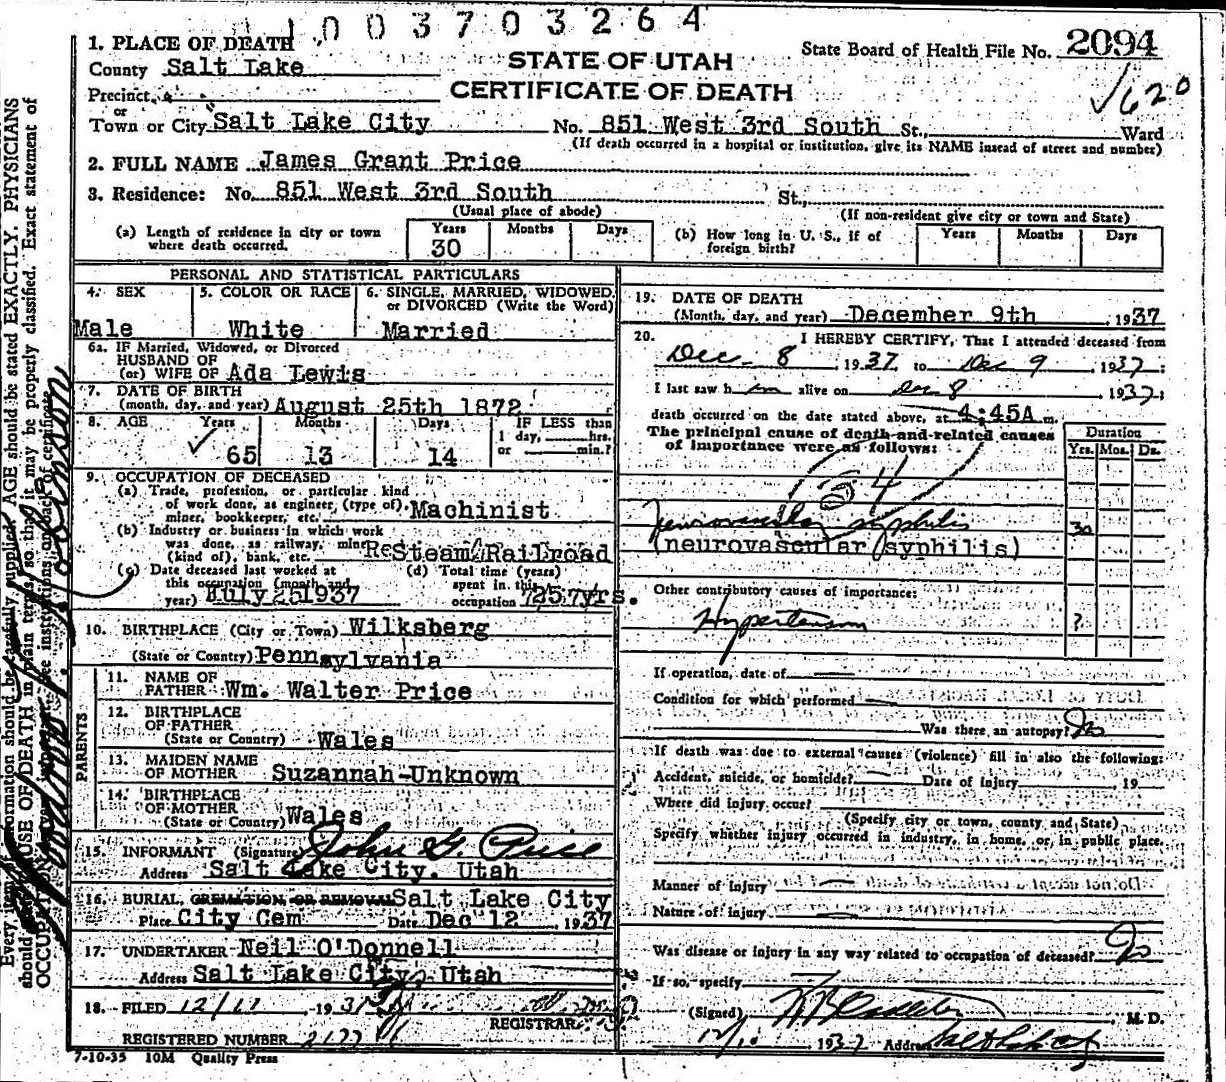 1003703264
1. PLACE OF DEATH
County Salt Lake
STATE OF UTAH
State Board of Health File No. 2094
Precinct
CERTIFICATE OF DEATH
620
or
Town or City Salt Lake City No. 851 West 3rd South St., Ward
(If death occurred in a hospital or institution, give its NAME instead of street and number)
2. FULL NAME James Grant Price
3. Residence: No. 851 West 3rd South St.,
(Usual place of abode) (If non-resident give city or town and State)
(a) Length of residence in city or town where death occurred. Years 30 Months Days
(b) How long in U. S., if of foreign birth? Years Months Days
PERSONAL AND STATISTICAL PARTICULARS
4. SEX Male
5. COLOR OR RACE White
6. SINGLE, MARRIED, WIDOWED, or DIVORCED (Write the Word) Married
6a. IF Married, Widowed, or Divorced
HUSBAND OF
(or) WIFE OF Ada Lewis
7. DATE OF BIRTH
(month, day, and year) August 25th 1872
8. AGE Years 65 Months 13 Days 14
IF LESS than
1 day, hrs.
or min.?
9. OCCUPATION OF DECEASED
(a) Trade, profession, or particular kind
of work done, as engineer, (type of)
miner, bookkeeper, etc. Machinist
(b) Industry or business in which work
was done, as railway, mine
(kind of), bank, etc. Re Steam Railroad
(c) Date deceased last worked at
this occupation (month and
year) July 25 1937
(d) Total time (years)
spent in this
occupation yrs.
10. BIRTHPLACE (City or Town) Wilksberg
(State or Country) Pennsylvania
PARENTS
11. NAME OF
FATHER Wm. Walter Price
12. BIRTHPLACE
OF FATHER
(State or Country) Wales
13. MAIDEN NAME
OF MOTHER Suzannah-Unknown
14. BIRTHPLACE
OF MOTHER
(State or Country) Wales
15. INFORMANT (Signature) John G. Price
Address Salt Lake City. Utah
16. BURIAL, CREMATION OR REMOVAL Salt Lake City
Place City Cem Date Dec 12 1937
17. UNDERTAKER Neil O'Donnell
Address Salt Lake City, Utah
18. FILED 12/11 193
REGISTRAR
REGISTERED NUMBER 2177
7-10-35 10M Quality Press
19. DATE OF DEATH
(Month, day, and year) December 9th, 1937
20. I HEREBY CERTIFY, That I attended deceased from
Dec. 8 1937 to Dec 9 1937;
I last saw him alive on Dec 8 1937;
death occurred on the date stated above, at 4:45A m.
The principal cause of death and related causes
of importance were as follows:
Duration
Yrs. Mos. Ds.
34
Neurovascular syphilis 30
(neurovascular syphilis)
Other contributory causes of importance:
Hypertension ?
If operation, date of
Condition for which performed
Was there an autopsy? No
If death was due to external causes (violence) fill in also the following:
Accident, suicide, or homicide? Date of injury 19
Where did injury occur?
(Specify city or town, county and State)
Specify whether injury occurred in industry, in home, or, in public place.
Manner of injury
Nature of injury
Was disease or injury in any way related to occupation of deceased? No
If so, specify
(Signed) M. D.
12/10 1937 Address Salt Lake City
Every item of information should be carefully supplied. AGE should be stated EXACTLY. PHYSICIANS
should CAUSE OF DEATH in plain terms, so that it may be properly classified. Exact statement of
OCCUPATION See instructions on back of certificate